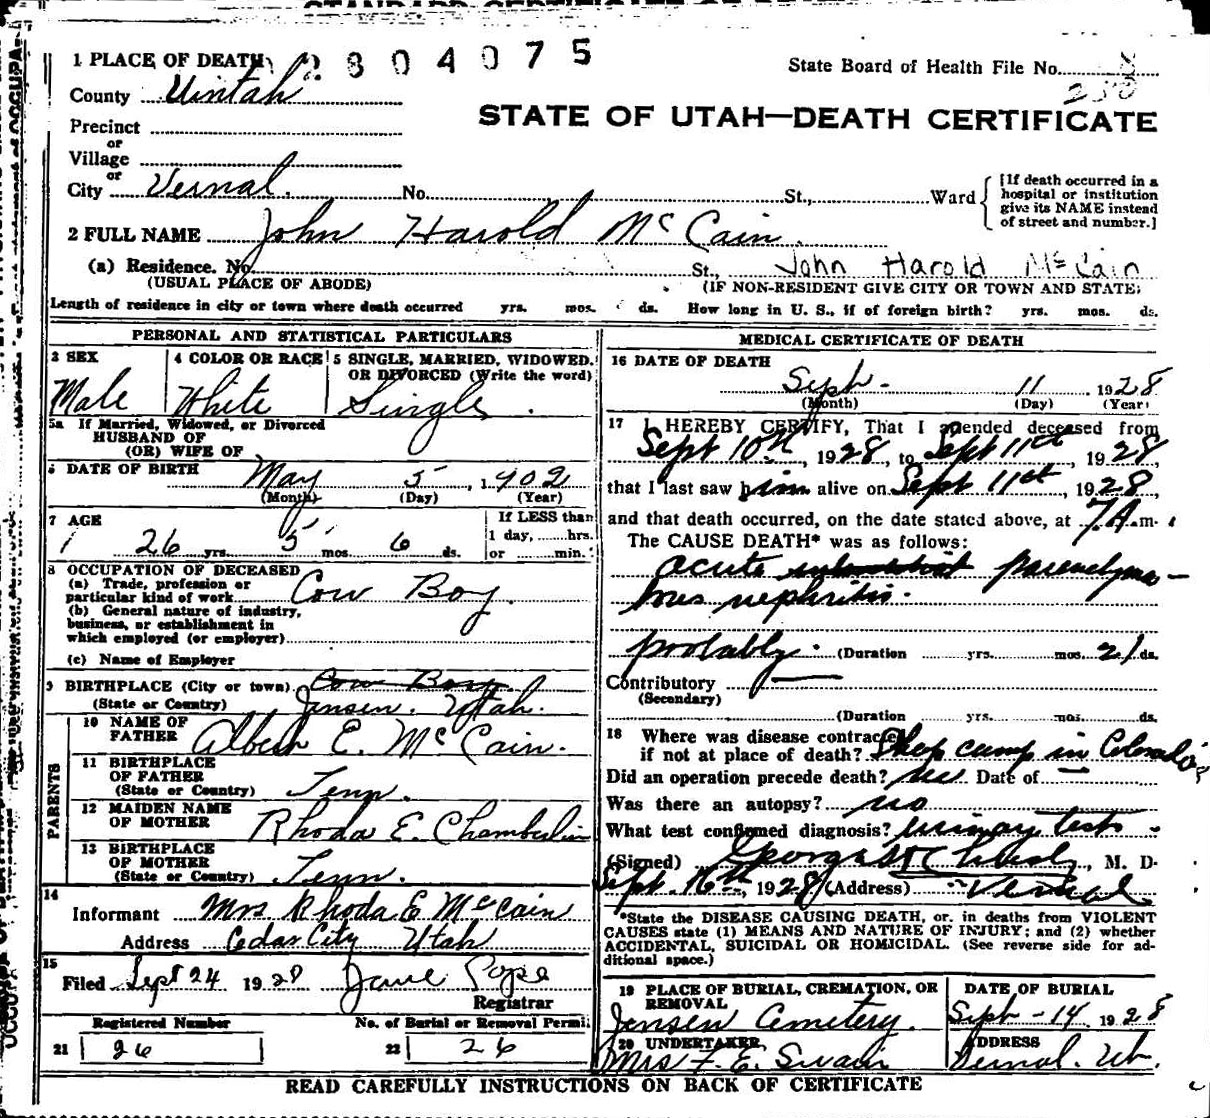 1 PLACE OF DEATH 2804075
State Board of Health File No. 250
County Uintah
STATE OF UTAH—DEATH CERTIFICATE
Precinct
or
Village
or
City Vernal. No. St., Ward
[If death occurred in a
hospital or institution
give its NAME instead
of street and number.]
2 FULL NAME John Harold McCain.
(a) Residence. No. St., John Harold McCain
(USUAL PLACE OF ABODE) (IF NON-RESIDENT GIVE CITY OR TOWN AND STATE)
Length of residence in city or town where death occurred yrs. mos. ds. How long in U. S., if of foreign birth? yrs. mos. ds.
PERSONAL AND STATISTICAL PARTICULARS
3 SEX
Male
4 COLOR OR RACE
White
5 SINGLE, MARRIED, WIDOWED,
OR DIVORCED (Write the word)
Single.
5a If Married, Widowed, or Divorced
HUSBAND OF
(OR) WIFE OF
6 DATE OF BIRTH
May 5, 1902
(Month) (Day) (Year)
7 AGE
26 yrs. 5 mos. 6 ds.
If LESS than
1 day, hrs.
or min.
8 OCCUPATION OF DECEASED
(a) Trade, profession or
particular kind of work Cow Boy.
(b) General nature of industry,
business, or establishment in
which employed (or employer)
(c) Name of Employer
9 BIRTHPLACE (City or town) Cow Boy.
(State or Country) Jensen. Utah.
PARENTS
10 NAME OF
FATHER Albert E. McCain.
11 BIRTHPLACE
OF FATHER
(State or Country) Tenn.
12 MAIDEN NAME
OF MOTHER Rhoda E. Chamberlin
13 BIRTHPLACE
OF MOTHER
(State or Country) Tenn.
14
Informant Mrs Rhoda E McCain
Address Cedar City Utah
15
Filed Sept 24 1928 Jane Pope
Registrar
Registered Number
21 26
No. of Burial or Removal Permit
22 26
MEDICAL CERTIFICATE OF DEATH
16 DATE OF DEATH
Sept. 11 1928
(Month) (Day) (Year)
17 I HEREBY CERTIFY, That I attended deceased from
Sept 10th, 1928, to Sept 11th, 1928,
that I last saw him alive on Sept 11th, 1928,
and that death occurred, on the date stated above, at 7 A. m.
The CAUSE DEATH* was as follows:
acute interstitial parenchyma-
tous nephritis.
probably. (Duration yrs. mos. 21 ds.
Contributory
(Secondary)
(Duration yrs. mos. ds.
18 Where was disease contracted
if not at place of death? Sheep camp in Colorado
Did an operation precede death? no Date of —
Was there an autopsy? no
What test confirmed diagnosis? urinary tests.
(Signed) George, M. D.
Sept. 16th, 1928 (Address) Vernal
*State the DISEASE CAUSING DEATH, or. in deaths from VIOLENT
CAUSES state (1) MEANS AND NATURE OF INJURY; and (2) whether
ACCIDENTAL, SUICIDAL OR HOMICIDAL. (See reverse side for ad-
ditional space.)
19 PLACE OF BURIAL, CREMATION, OR
REMOVAL
Jensen Cemetery.
DATE OF BURIAL
Sept - 14 1928
20 UNDERTAKER,
Mrs F. E. Swain
ADDRESS
Vernal. Ut.
READ CAREFULLY INSTRUCTIONS ON BACK OF CERTIFICATE